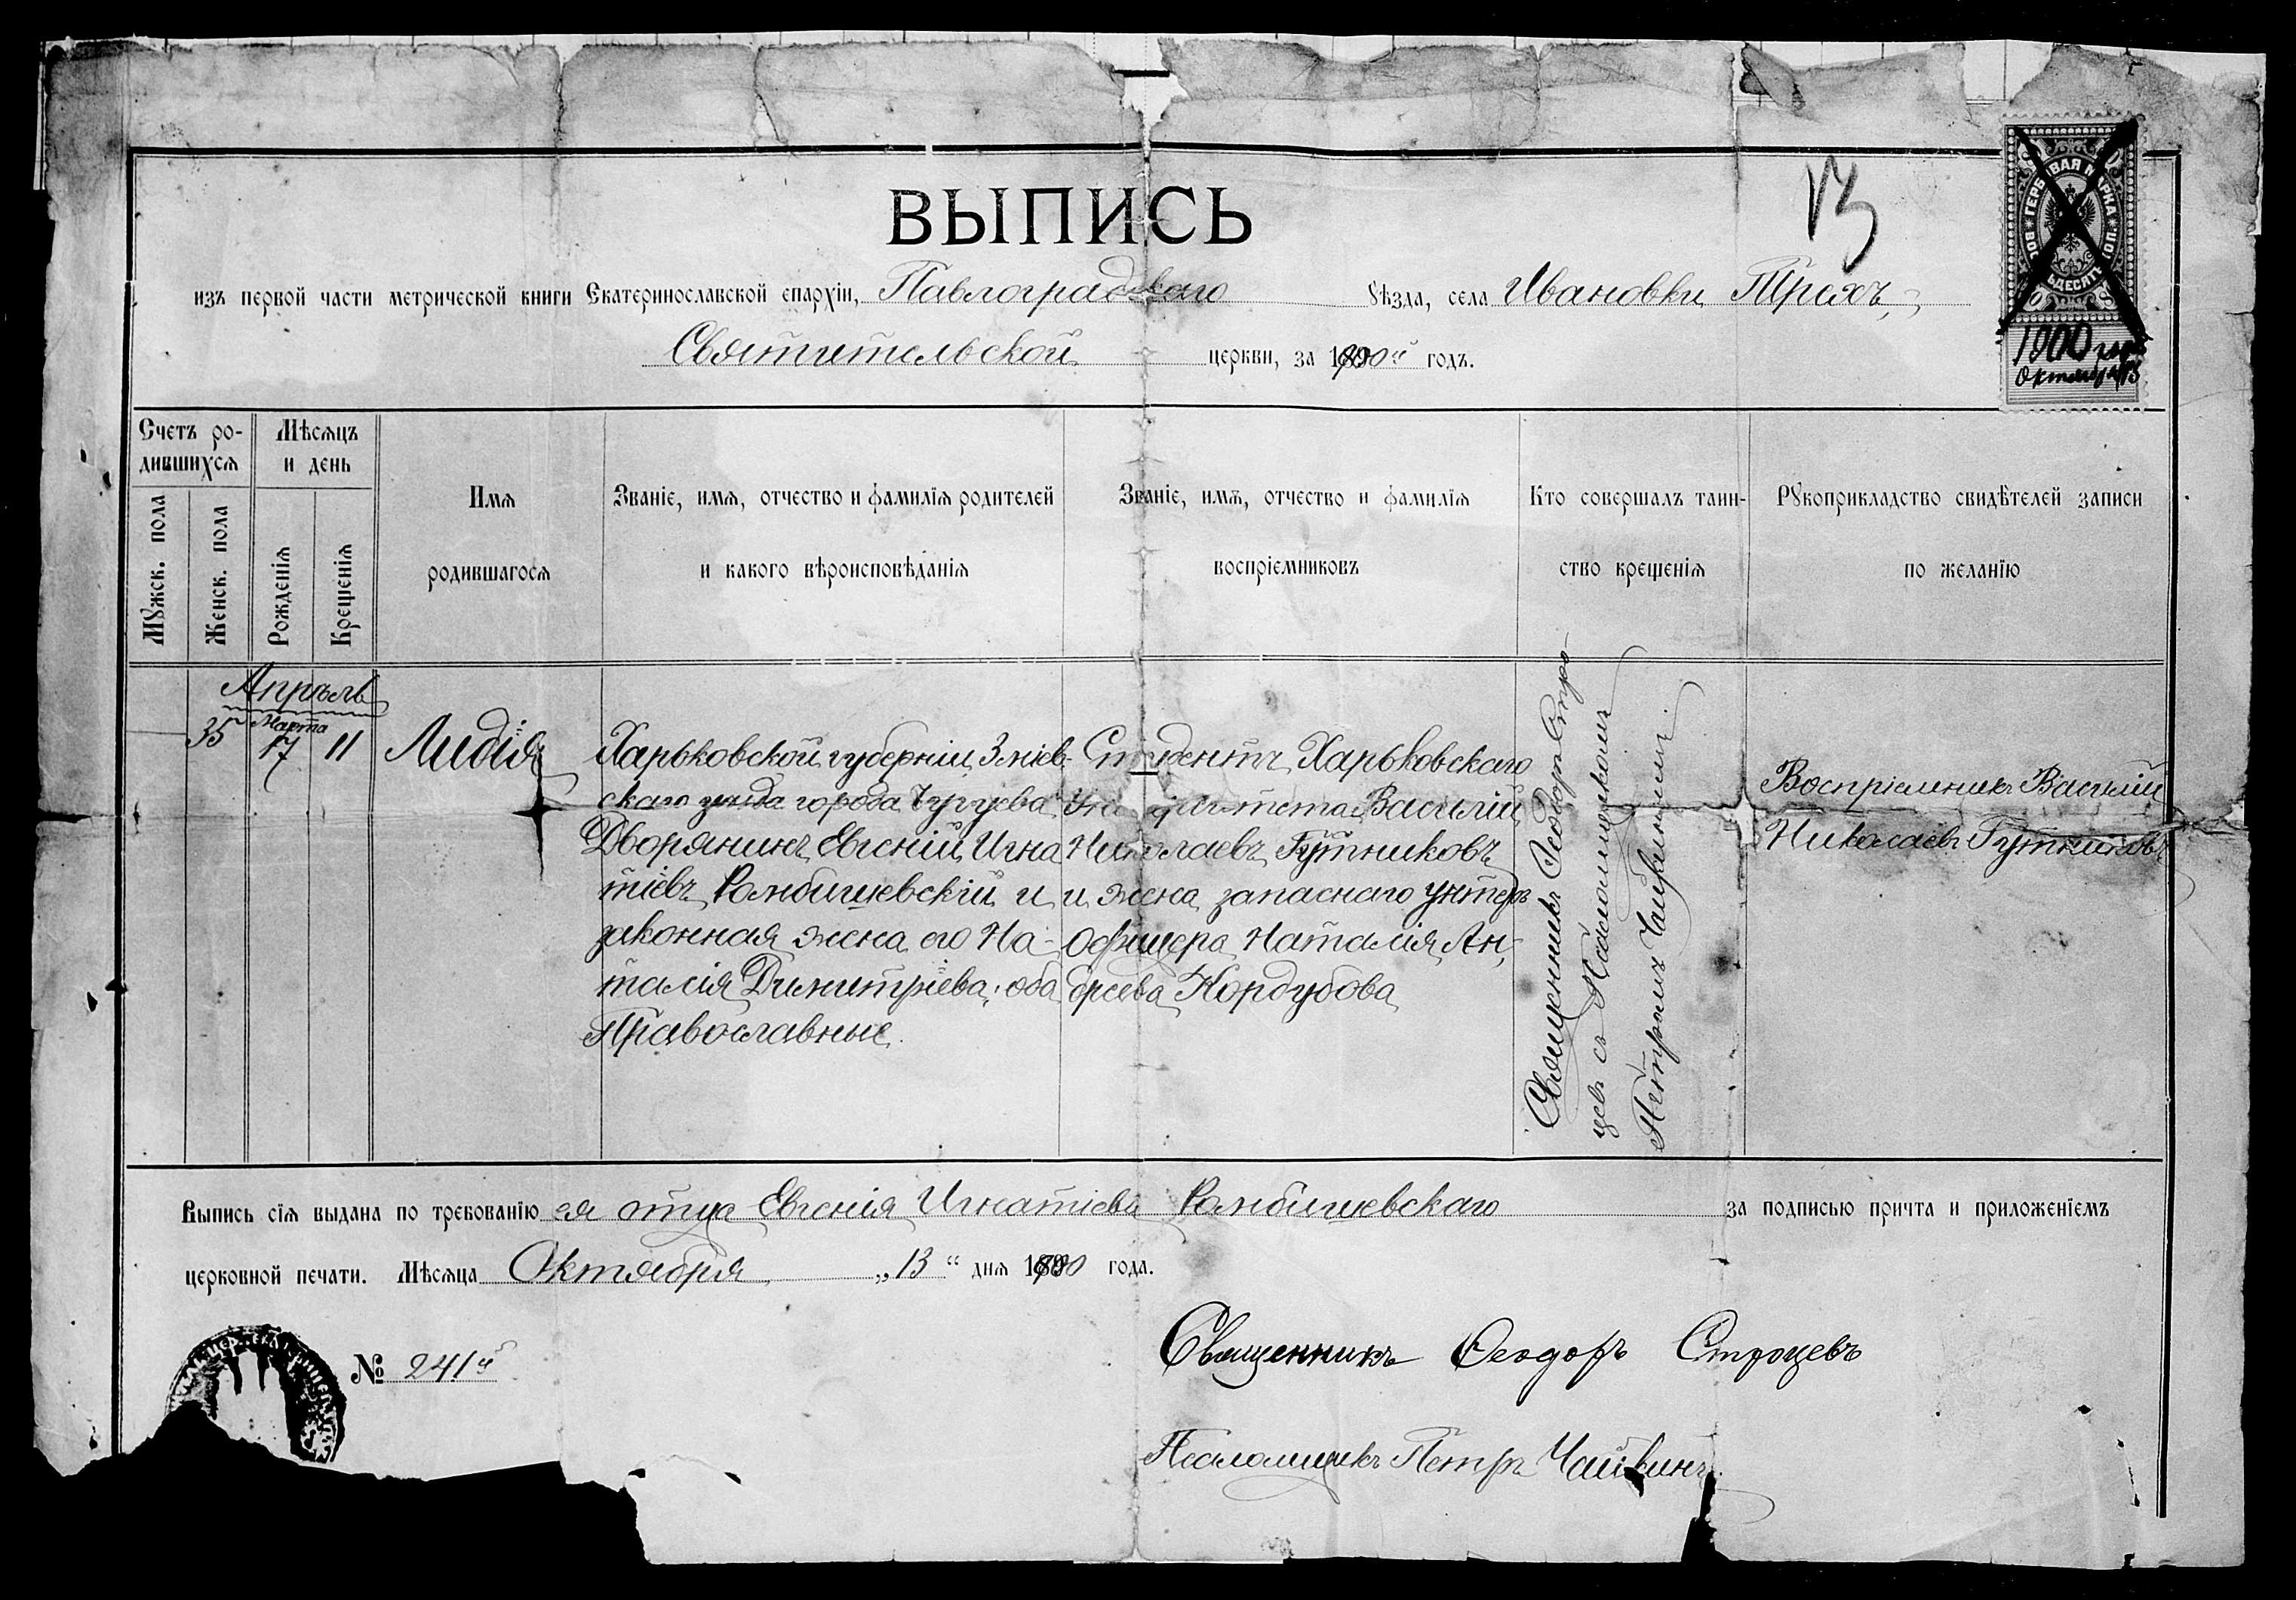 ВЫПИСЬ
13
изъ первой части метрической книги Екатеринославской епархіи, Павлоградскаго уѣзда, села Ивановки Трехъ-
Святительской церкви, за 1900й годъ.
ГЕРБОВАЯ МАРКА
1900 года
Октября 13
Счетъ ро-
дившихся
Мужск. пола
Женск. пола
Мѣсяцъ
и день
Рожденія
Крещенія
Имя
родившагося
Званіе, имя, отчество и фамилія родителей
и какого вѣроисповѣданія
Званіе, имя, отчество и фамилія
воспріемниковъ
Кто совершалъ таин-
ство крещенія
Рукоприкладство свидѣтелей записи
по желанію
Апрѣль
35
Марта
17
11
Лидія
Харьковской губерніи, Зміев-
скаго уѣзда города Чугуева
Дворянинъ Евгеній Игна
тіевъ Рамбишевскій и
законная жена его На-
талія Димитріева; оба
Православные.
Студентъ Харьковскаго
Василій
Николаевъ Гутниковъ
и жена запаснаго унтеръ
офицера Наталія Ан-
дреева Кордубова
Священникъ Ѳеодоръ Стро-
цевъ съ Псаломщикомъ
Петромъ Чайкинымъ.
Воспріемникъ Василій
Николаевъ Гутниковъ
Выпись сія выдана по требованію ея отца Евгенія Игнатіева Рамбишевскаго за подписью причта и приложеніемъ
церковной печати. Мѣсяца Октября „13“ дня 1900 года.
№ 241й
Священникъ Ѳеодоръ Строцевъ
Псаломщикъ Петръ Чайкинъ.